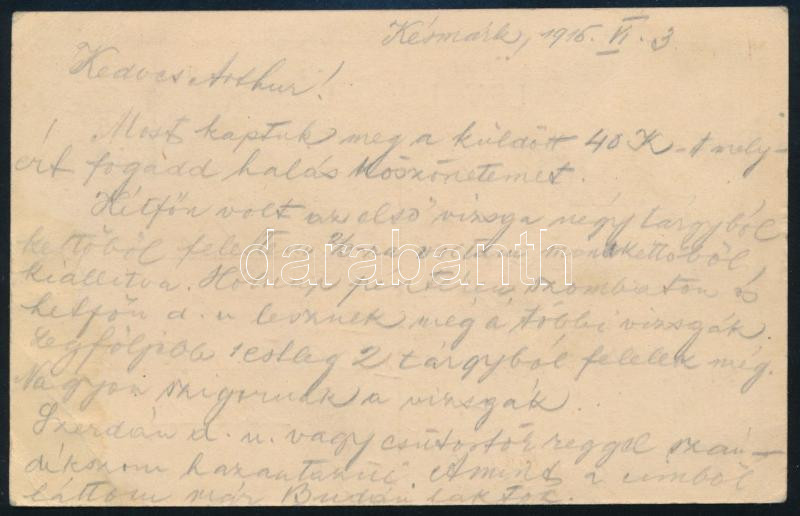 Késmárk, 1916. VI. 3
Kedves Arthur!
Most kaptuk meg a küldött 40 K-t mely-
ért fogadd hálás köszönetemet.
Hétfőn volt az első vizsga négy tárgyból
kettőből voltam mindkettőből
kiállitva. szombaton és
hetfőn d. u. lesznek meg a többi vizsgák.
Legföljebb 1 esetleg 2 tárgyból felelek még.
Nagyon szigoruak a vizsgák.
Szerdán d. u. vagy csütörtök reggel szán-
dékszom hazautazni. Amint a cimből
láttom már Budán laktok.
darabanth